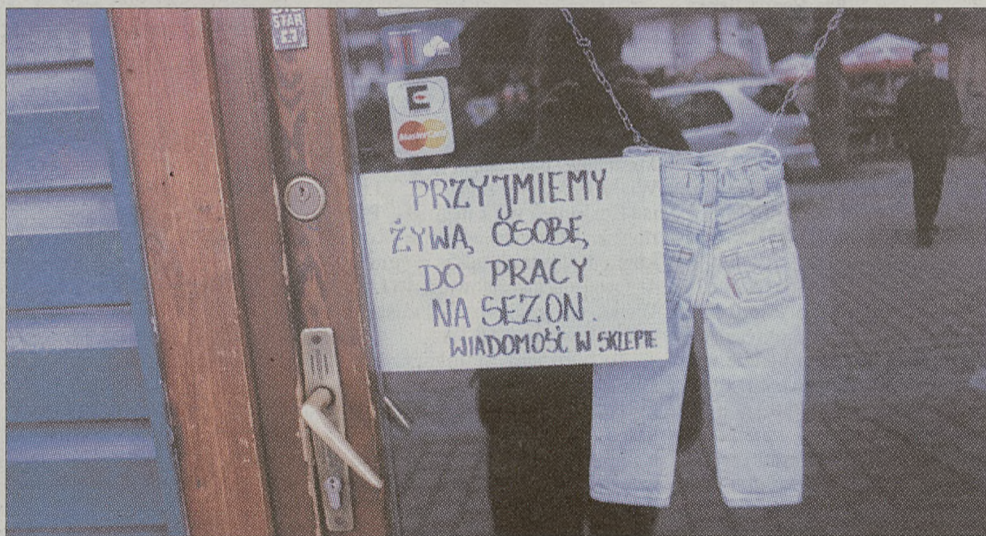 STAR
E
MasterCard
PRZYJMIEMY
ŻYWĄ OSOBĘ
DO PRACY
NA SEZON.
WIADOMOŚĆ W SKLEPIE